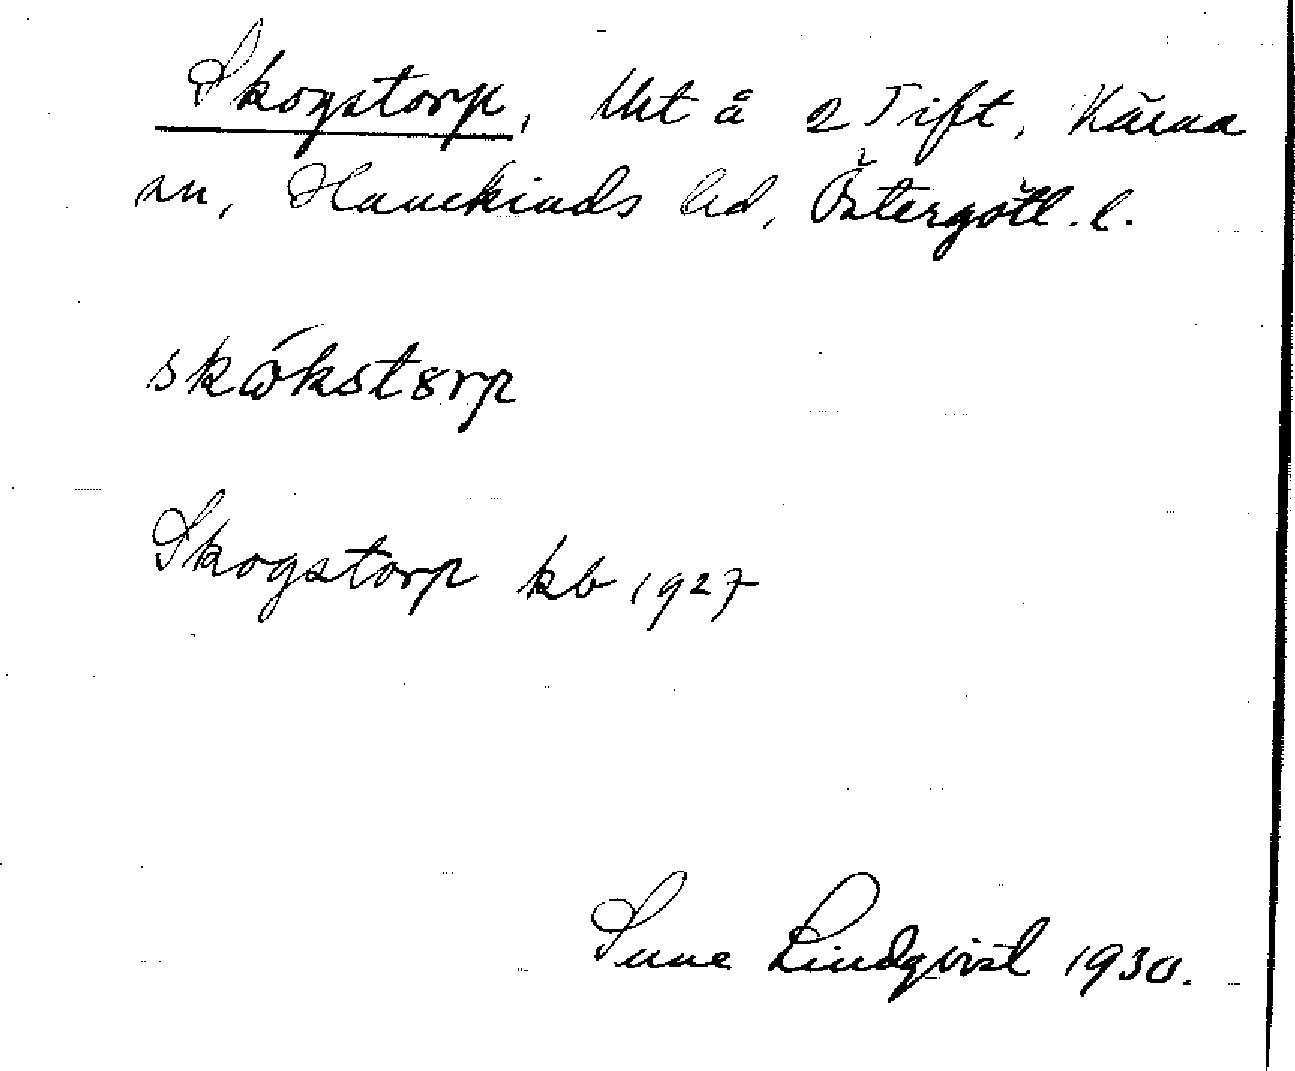 Skogstorp, Uht å 2 Tift, Kärna
sn, Hanekinds hd, Östergötl. l.
skώkstorp
Skogstorp kb 1927
Sune Lindqvist 1930.